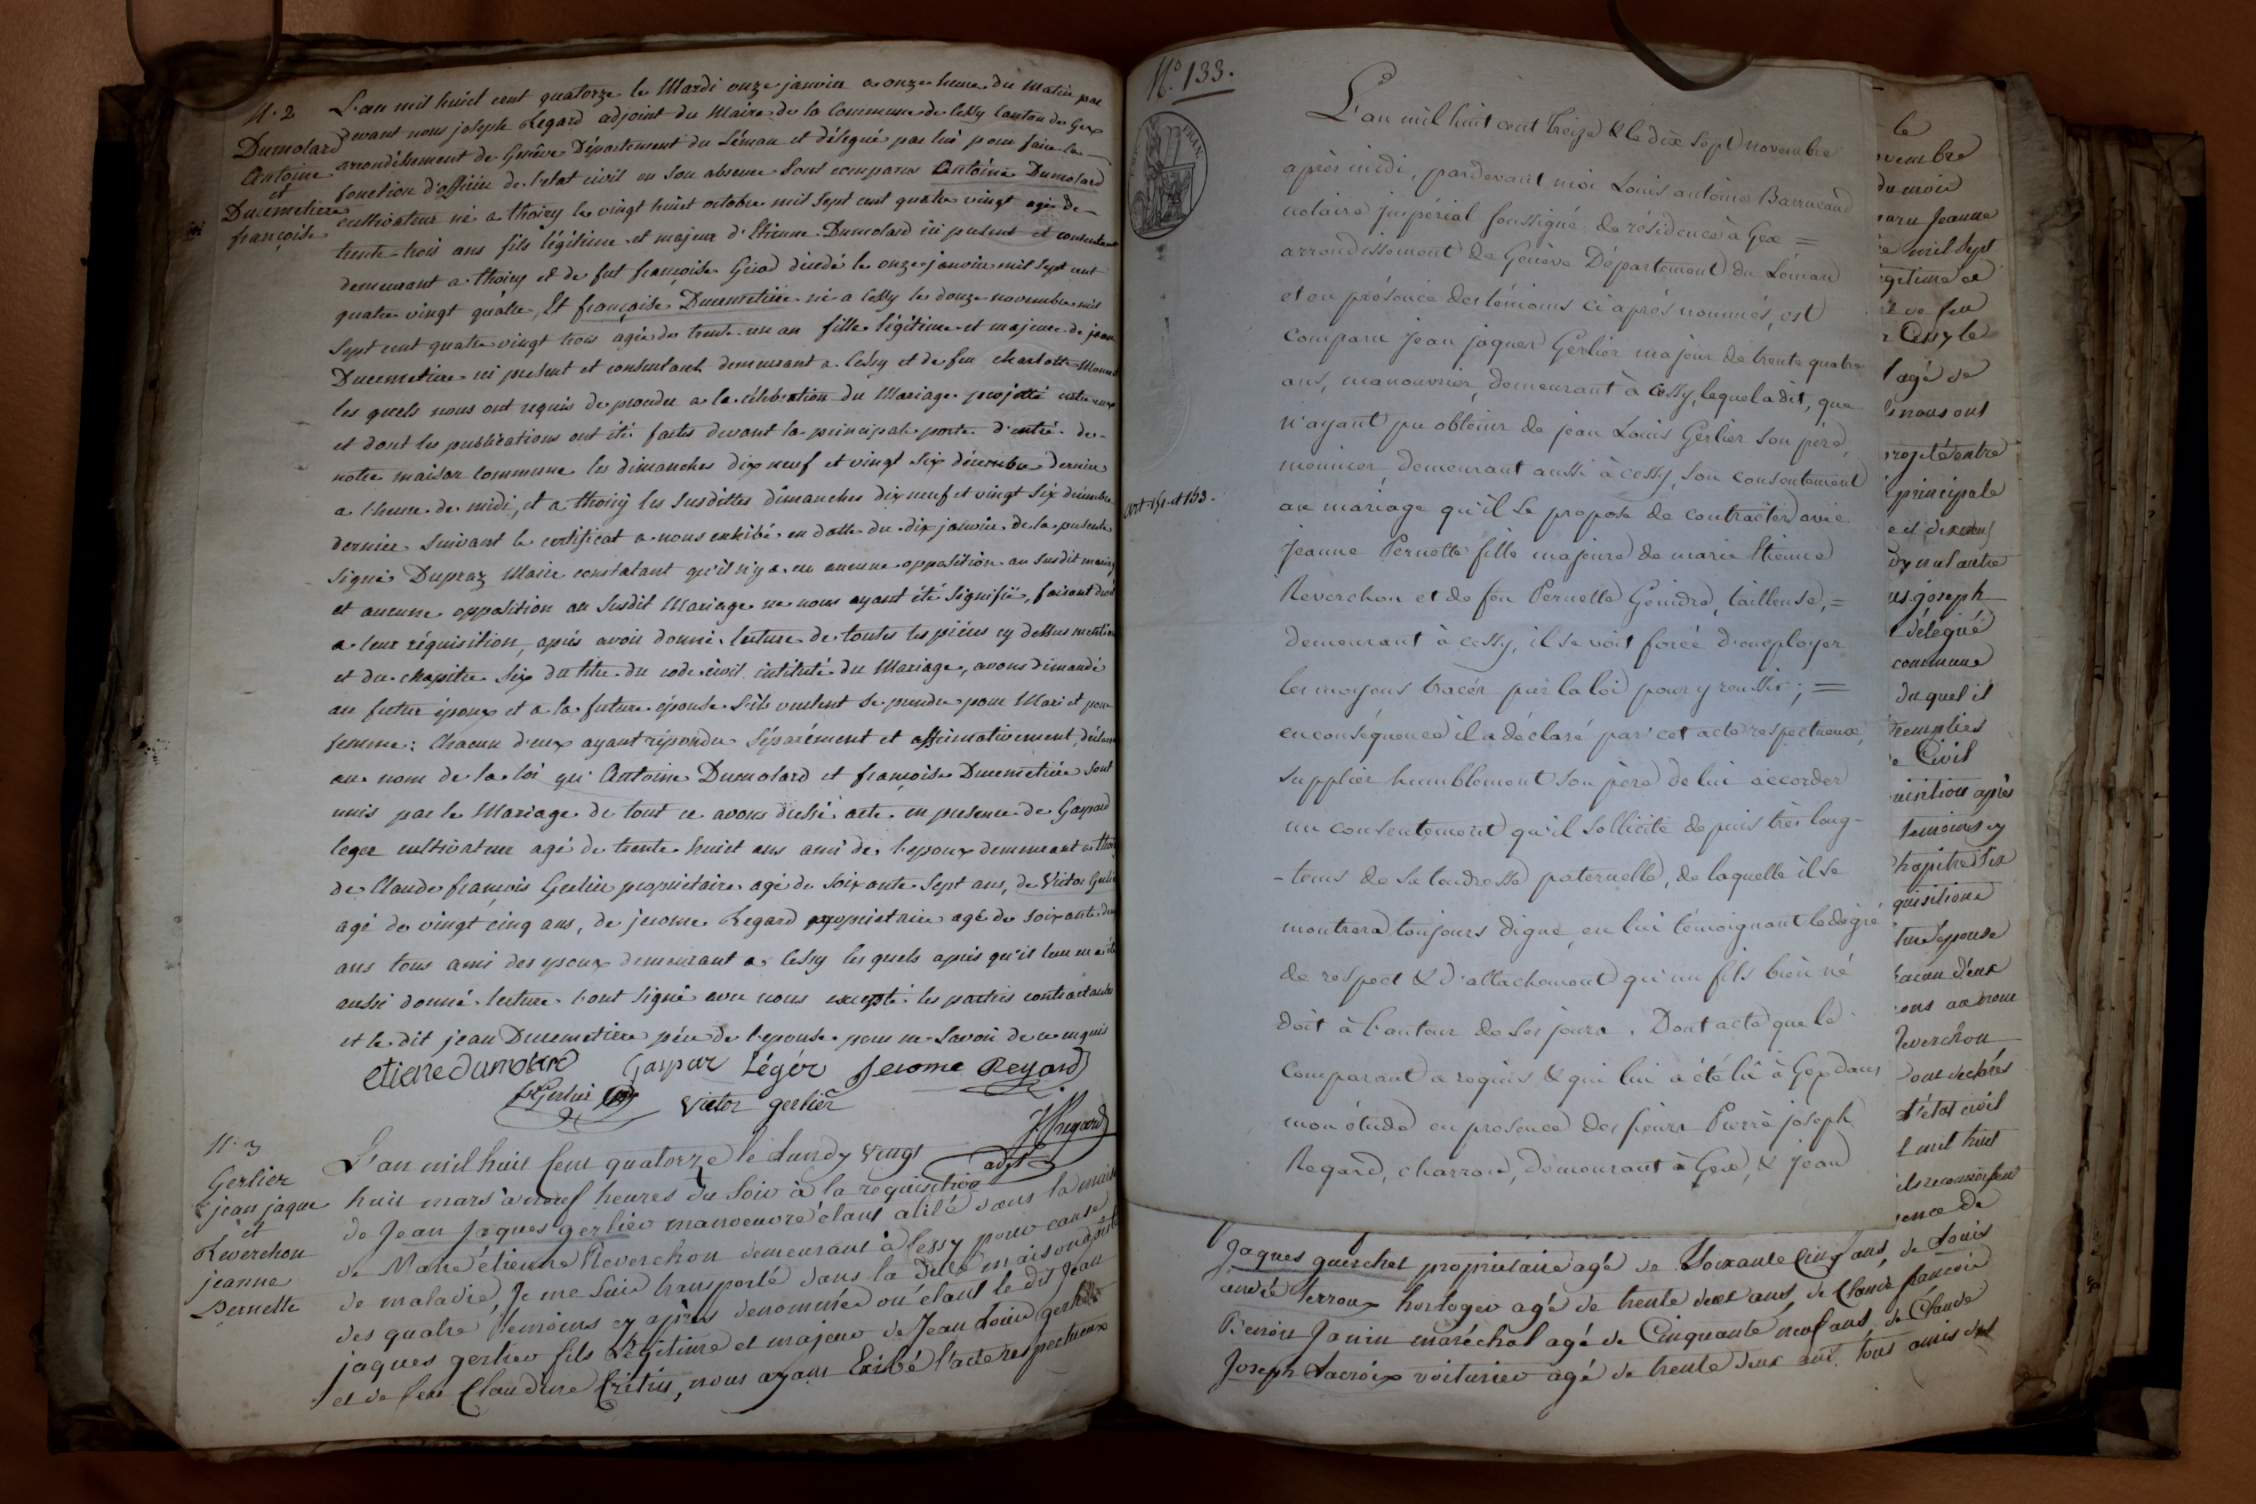 N.° 2
Dumolard
Antoine
et
Ducemetiere
françoise
L'an mil huict cent quatorze le Mardi onze janvier a onze heure du matin par
devant nous joseph Regard adjoint du Maire de la Commune de Cessy Canton de Gex
arrondissement de Genêve Département du Léman et délegué par lui pour faire la
fonction d'officier de l'etat civil en son absence sont comparus Antoine Dumolard
cultivateur né a thoiry le vingt huict octobre mil sept cent quatre vingt agé de
trente trois ans fils légitime et majeur d'Etienne Dumolard ici present et consentant
demeurant a thoiry et de fut françoise Griod dicédé le onze janvier mil sept cent
quatre vingt quatre, Et françoise Ducemetiere né a Cessy le douze novembre mil
sept cent quatre vingt trois agée de trente un an fille légitime et majeure de jean
Ducemetiere ici present et consentant demeurant a Cessy et de feu charlotte
les quels nous ont requis de proceder a la célébration du Mariage projetté entre eux
et dont les publications ont été faites devant la principale porte d'entré de
notre maison Commune les dimanches dix neuf et vingt six décembre dernier
a l'heure de midi, et a thoiry les susdittes dimanches dix neuf et vingt six décembre
dernier suivant le certificat a nous exhibé en datte du dix janvier de la presente
signé Dupraz Maire constatant qu'il n'y a eu aucune opposition au susdit mariage
et aucune opposition au susdit Mariage ne nous ayant été signifié, faisant droit
a leur réquisition, après avoir donné lecture de toutes les pièces cy dessus
et du chapitre six du titre du code civil intitulé du Mariage, avons dimandé
au futur époux et a la future épouse s'ils veulent se prendre pour Mari et pour
femme: chacun d'eux ayant répondu séparément et affirmativement, déclarons
au nom de la loi qu'Antoine Dumolard et françoise Ducemetiere sont
unis par le Mariage de tout ce avons dressé acte en presence de Gaspard
leger cultivateur agé de trente huict ans ami de l'epoux demeurant a
de Claude françois Gerlier propriétaire agé de soixante sept ans, de Victor
agé de vingt cinq ans, de jerome Regard propriétaire agé de soixante
ans tous amis des epoux demeurant a Cessy les quels après qu'il leur en a été
aussi donné lecture l'ont signé avec nous excepté les parties contractantes
et le dit jean Ducemetiere pére de l'epouse pour ne savoir de ce enquis
etiene dumolard Gaspar Légér Jerome Regard
Gerlier victor gerlier
J. Regard
adjt
N.° 3
Gerlier
jean jaque
et
Reverchon
jeanne
Pernette
L'an mil huit Cent quatorze le Lundy vingt
huit mars à neuf heures du soir à la requisition
de Jean Jaques gerlier manoeuvre étant alité dans la maison
de Marie étienne Reverchon demeurant à Cessy pour cause
de maladie, Je me suis transporté dans la dite maison
des quatre Temoins cy après denommés où étant le dit Jean
jaques gerlier fils légitime et majeur de Jean Louis gerlier
et de feue Claudine Critin, nous ayant Exibé l'acte respectueux
N.° 133.
Art. 151. et 153.
L'an mil huit cent treize & le dix sept novembre
après midi, pardevant moi Louis antoine Barrucand
notaire Impérial soussigné, de résidence à Gex =
arrondissement de Genève Département du Léman
et en présence des témoins ci après nommés, est
comparu Jean jaques Gerlier majeur de trente quatre
ans, manouvrier, demeurant à Cessy, lequel a dit, que
n'ayant pu obtenir de jean Louis Gerlier son père,
meunier, demeurant aussi à cessy, son consentement
au mariage qu'il se propose de contracter avec
Jeanne Pernette fille majeure de marie Etienne
Reverchon et de feu Pernette Genidre, tailleuse, =
demeurant à cessy, il se voit forcé d'employer
les moyens tracés par la loi pour y reussir; =
en conséquence il a déclaré par cet acte respectueux,
supplier humblement son père de lui accorder
un consentement qu'il sollicite depuis très long-
-tems de sa tendresse paternelle, de laquelle il se
montrera toujours digne, en lui témoignant le degré
de respect & d'attachement qu'un fils bien né
doit à l'auteur de ses jours. Dont acte que le
comparant a requis & qui lui a été lû à Gex dans
mon étude en presence des sieurs Pierre joseph
Regard, charron, demeurant à Gex, & Jean
Jaques querchet propriétaire agé de Soixante Cinq ans, de Louis
andré terroux horloger agé de trente deux ans, de Claude françois
Benoi Janin maréchal agé de Cinquante neuf ans, de Claude
Joseph Lacroix voiturier agé de trente deux ans. tous amis des
le
ovembre
du mois
aru Jeanne
e mil sept
gitime et
de feu
Cessy le
agé de
nous ont
rojeté entre
principale
joseph
délégué
commune
du quel il
remplies
Civil
uisition après
temoins cy
hapitre six
quisitions
ture Epouse
hacun d'eux
ons au nom
Reverchon
d'état civil
mil huit
ence de